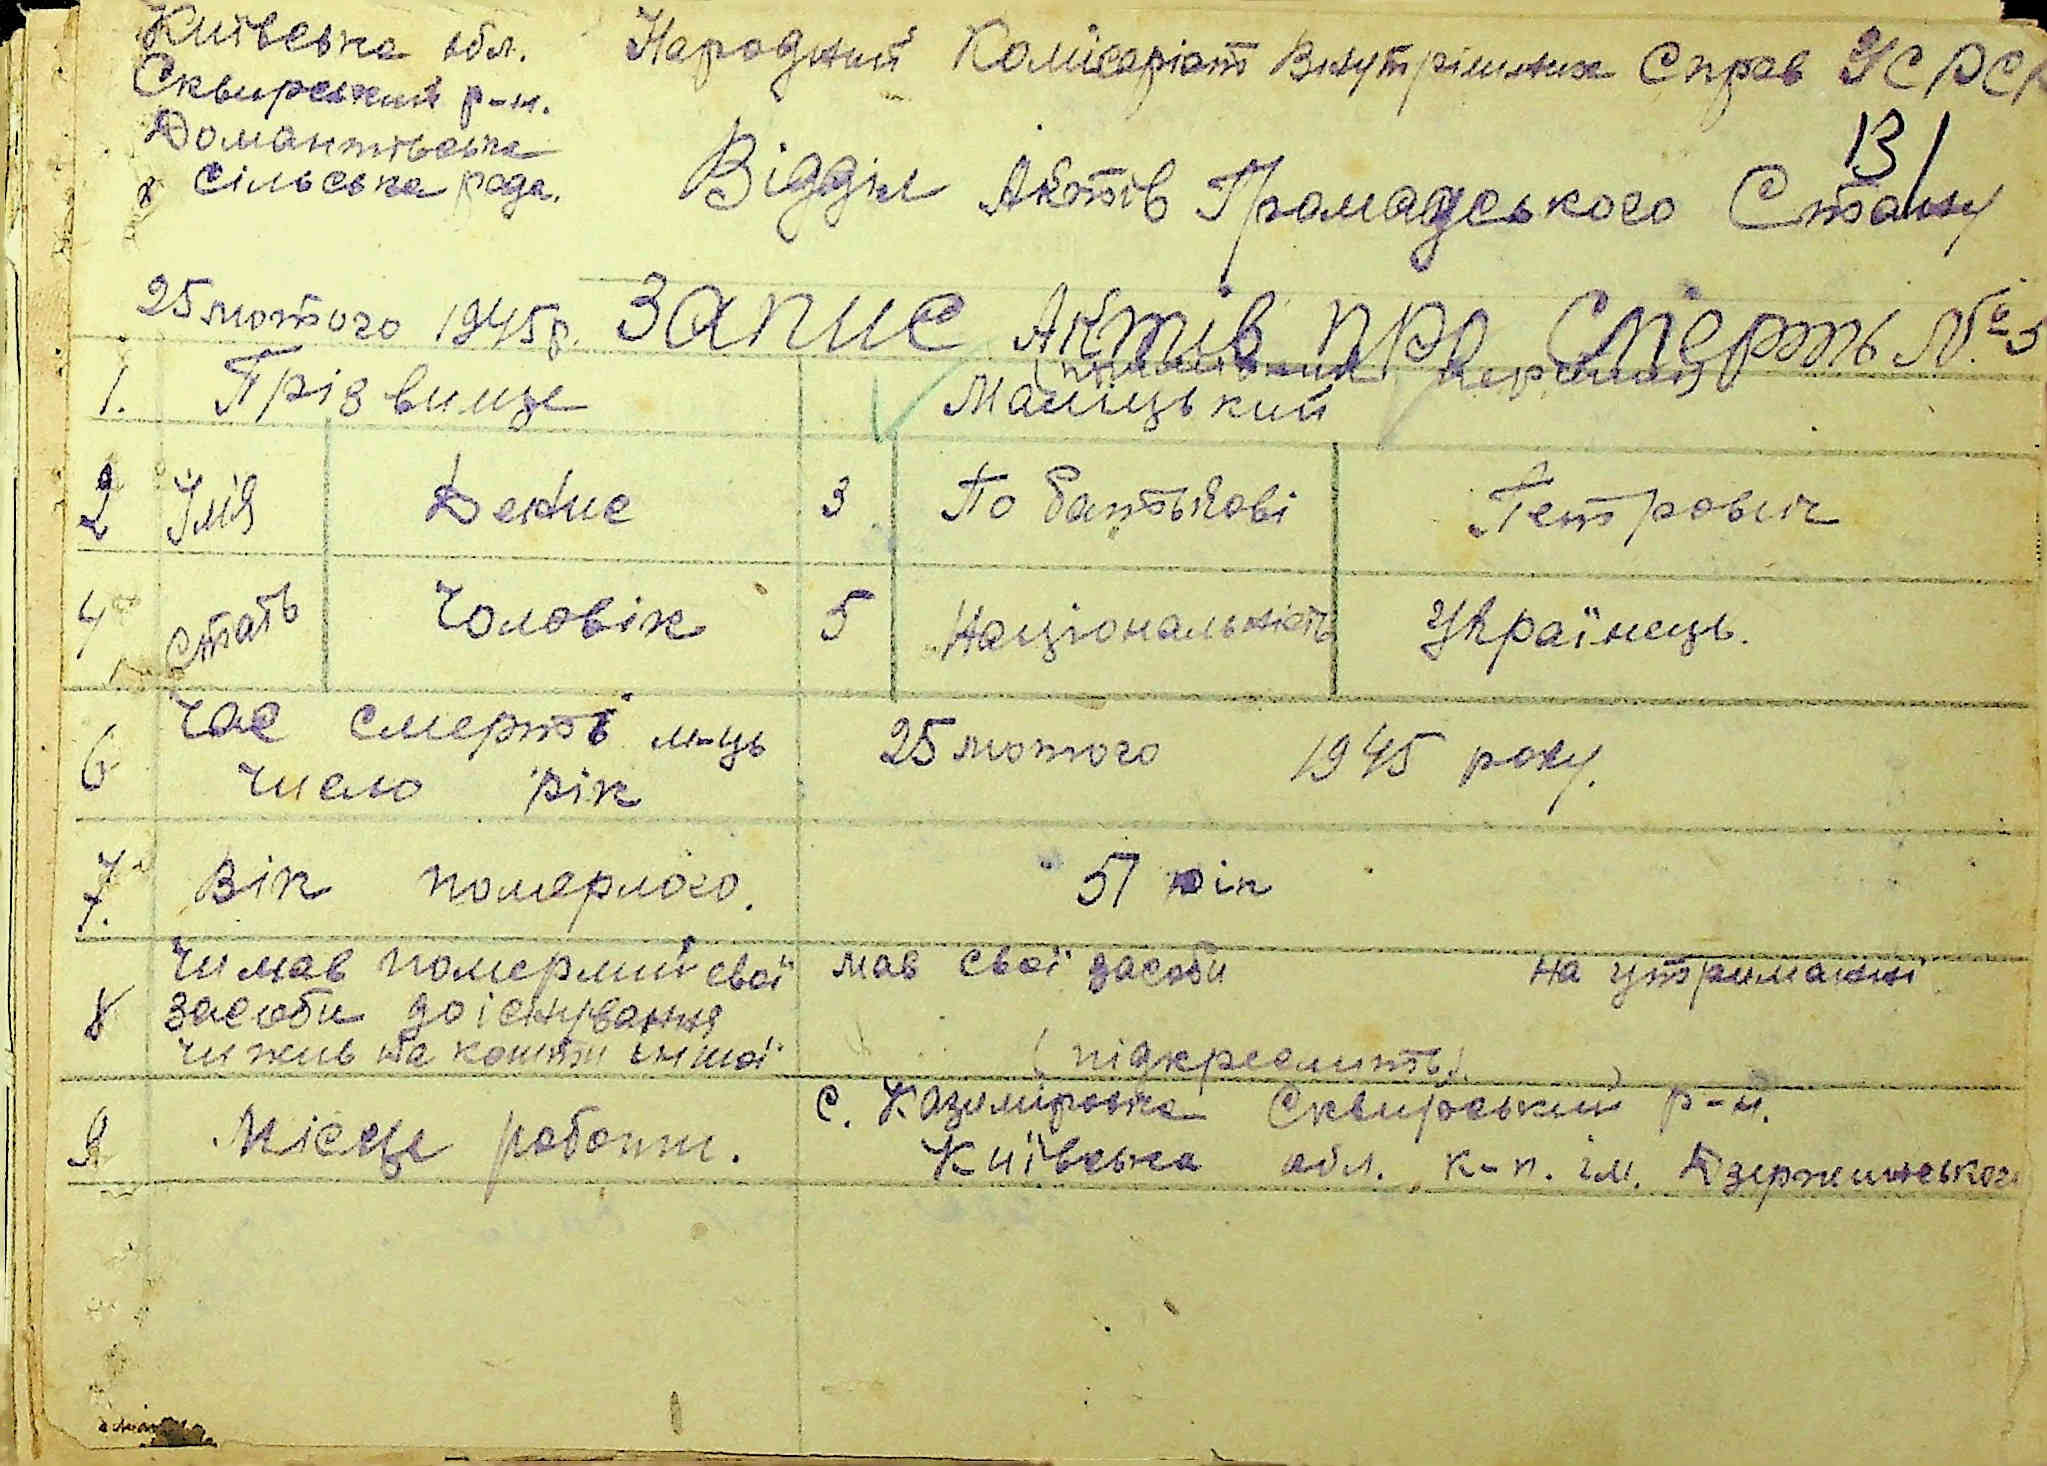 Київська обл. Народний Комісаріат Внутрішних Справ УСРСР
Сквирський р-н.
Домантівська
сільська рада. Відділ Актів Громадського Стану
131
25 лютого 1945 р. Запис Актів про Смерть № 5
1. Прізвище Маліцький
2 Імія Денис 3 По батькові Петрович
4 Стать Чоловік 5 Національність Українець.
6 Час смерті м-ць 25 лютого 1945 року.
число рік
7. Вік померлого. 51 рік
Чи мав померлий свої мав свої засоби на утриманні
8 засоби до існування
чи жив на кошти іншої (підкреслить).
9 Місце роботи. с. Казимировка Сквирський р-н.
Київська обл. к-п. ім. Дзержинського